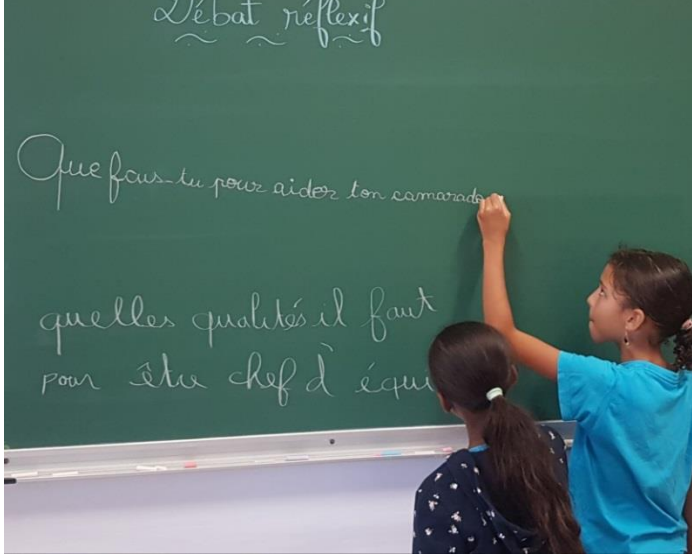 Débat réflexif
Que fais-tu pour aider ton camarade
quelles qualités il faut
pour être chef d'équi